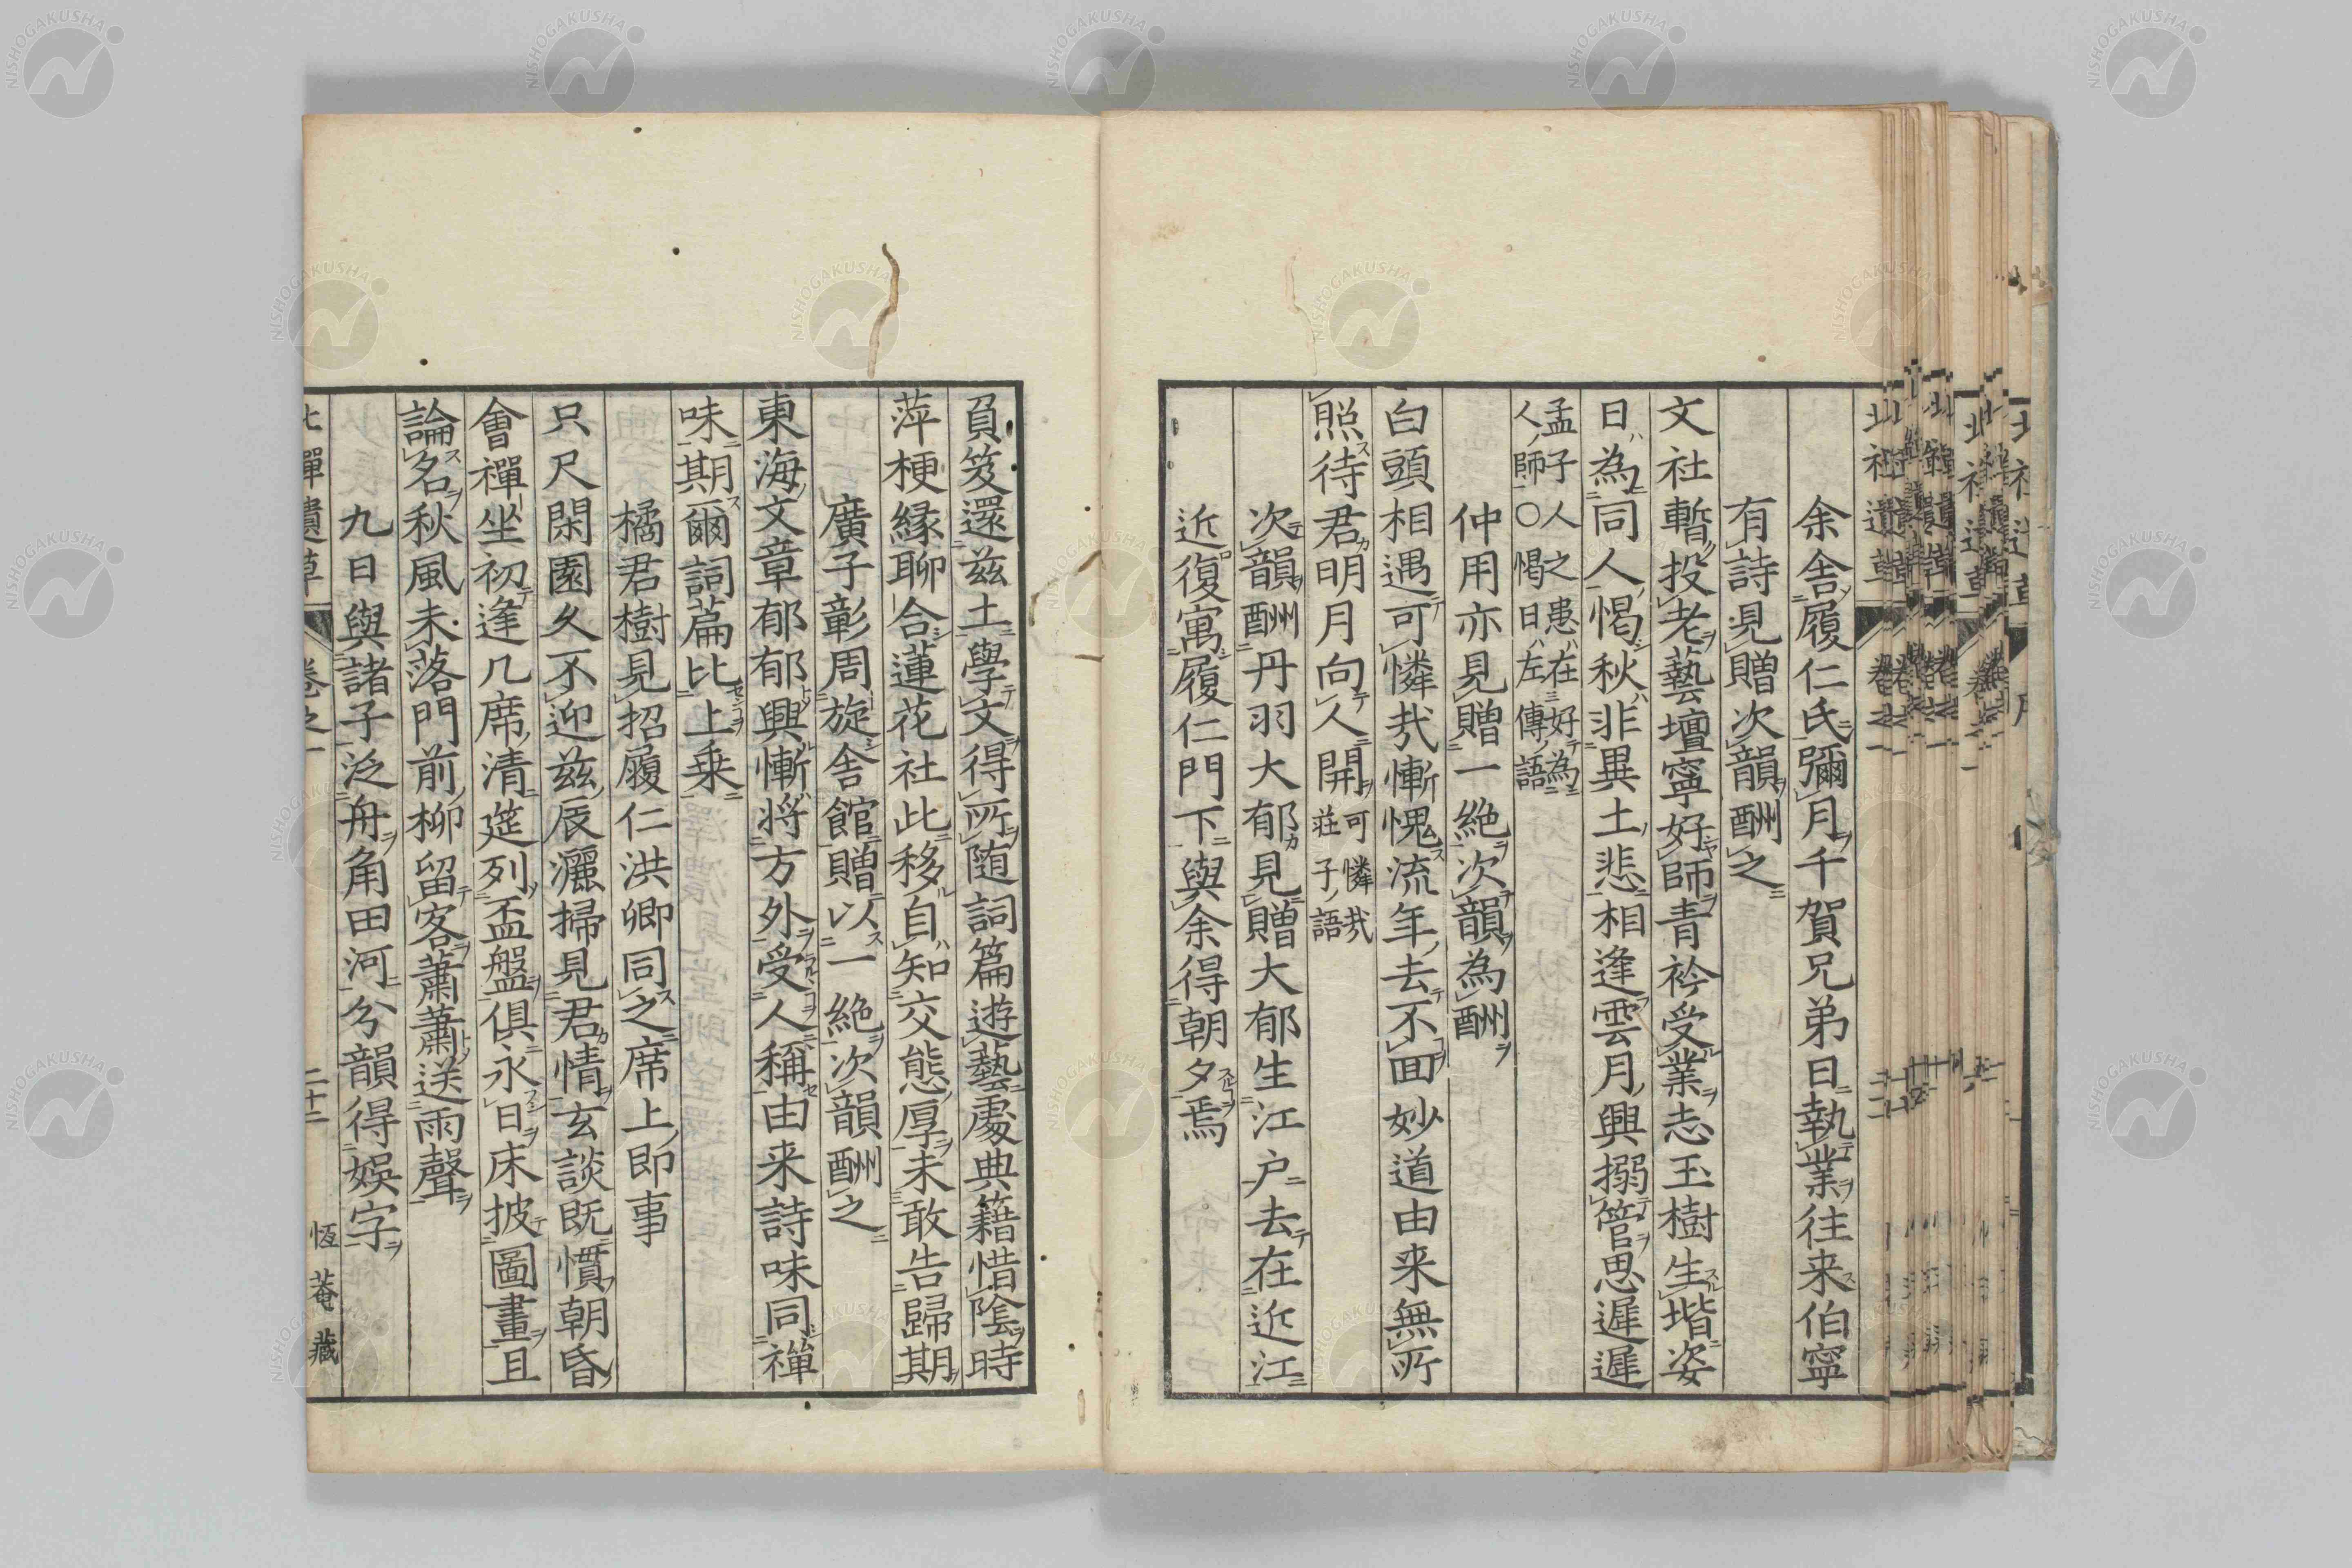 余舎履仁氏彌月千賀兄弟日執業往来伯寧
有詩見贈次韻酬之
文社暫投老藝壇寧好師青衿受業志玉樹生堦姿
日為同人愒秋非異土悲相逢雲月興搦管思遲遲
孟子人之患在好為
人師○愒日左傳語
仲用亦見贈一絶次韻為酬
白頭相遇可憐哉慚愧流年去不回妙道由来無所
照待君明月向人開
可憐哉
莊子語
次韻酬丹羽大郁見贈大郁生江戸去在近江
近復寓履仁門下與余得朝夕焉
負笈還茲土學文得所随詞篇遊藝處典籍惜陰時
萍梗縁聊合蓮花社此移自知交態厚未敢告歸期
廣子彰周旋舎館贈以一絶次韻酬之
東海文章郁郁興慚將方外受人稱由来詩味同禅
味期爾詞篇比上乗
橘君樹見招履仁洪卿同之席上即事
只尺閑園久不迎茲辰灑掃見君情玄談既慣朝昏
會禪坐初逢几席清筵列盃盤俱永日床披圖畫且
論名秋風未落門前柳留客蕭蕭送雨聲
九日與諸子泛舟角田河分韻得娯字
北禪遺草
卷之一
二十二
恆菴藏
NISHOGAKUSHA